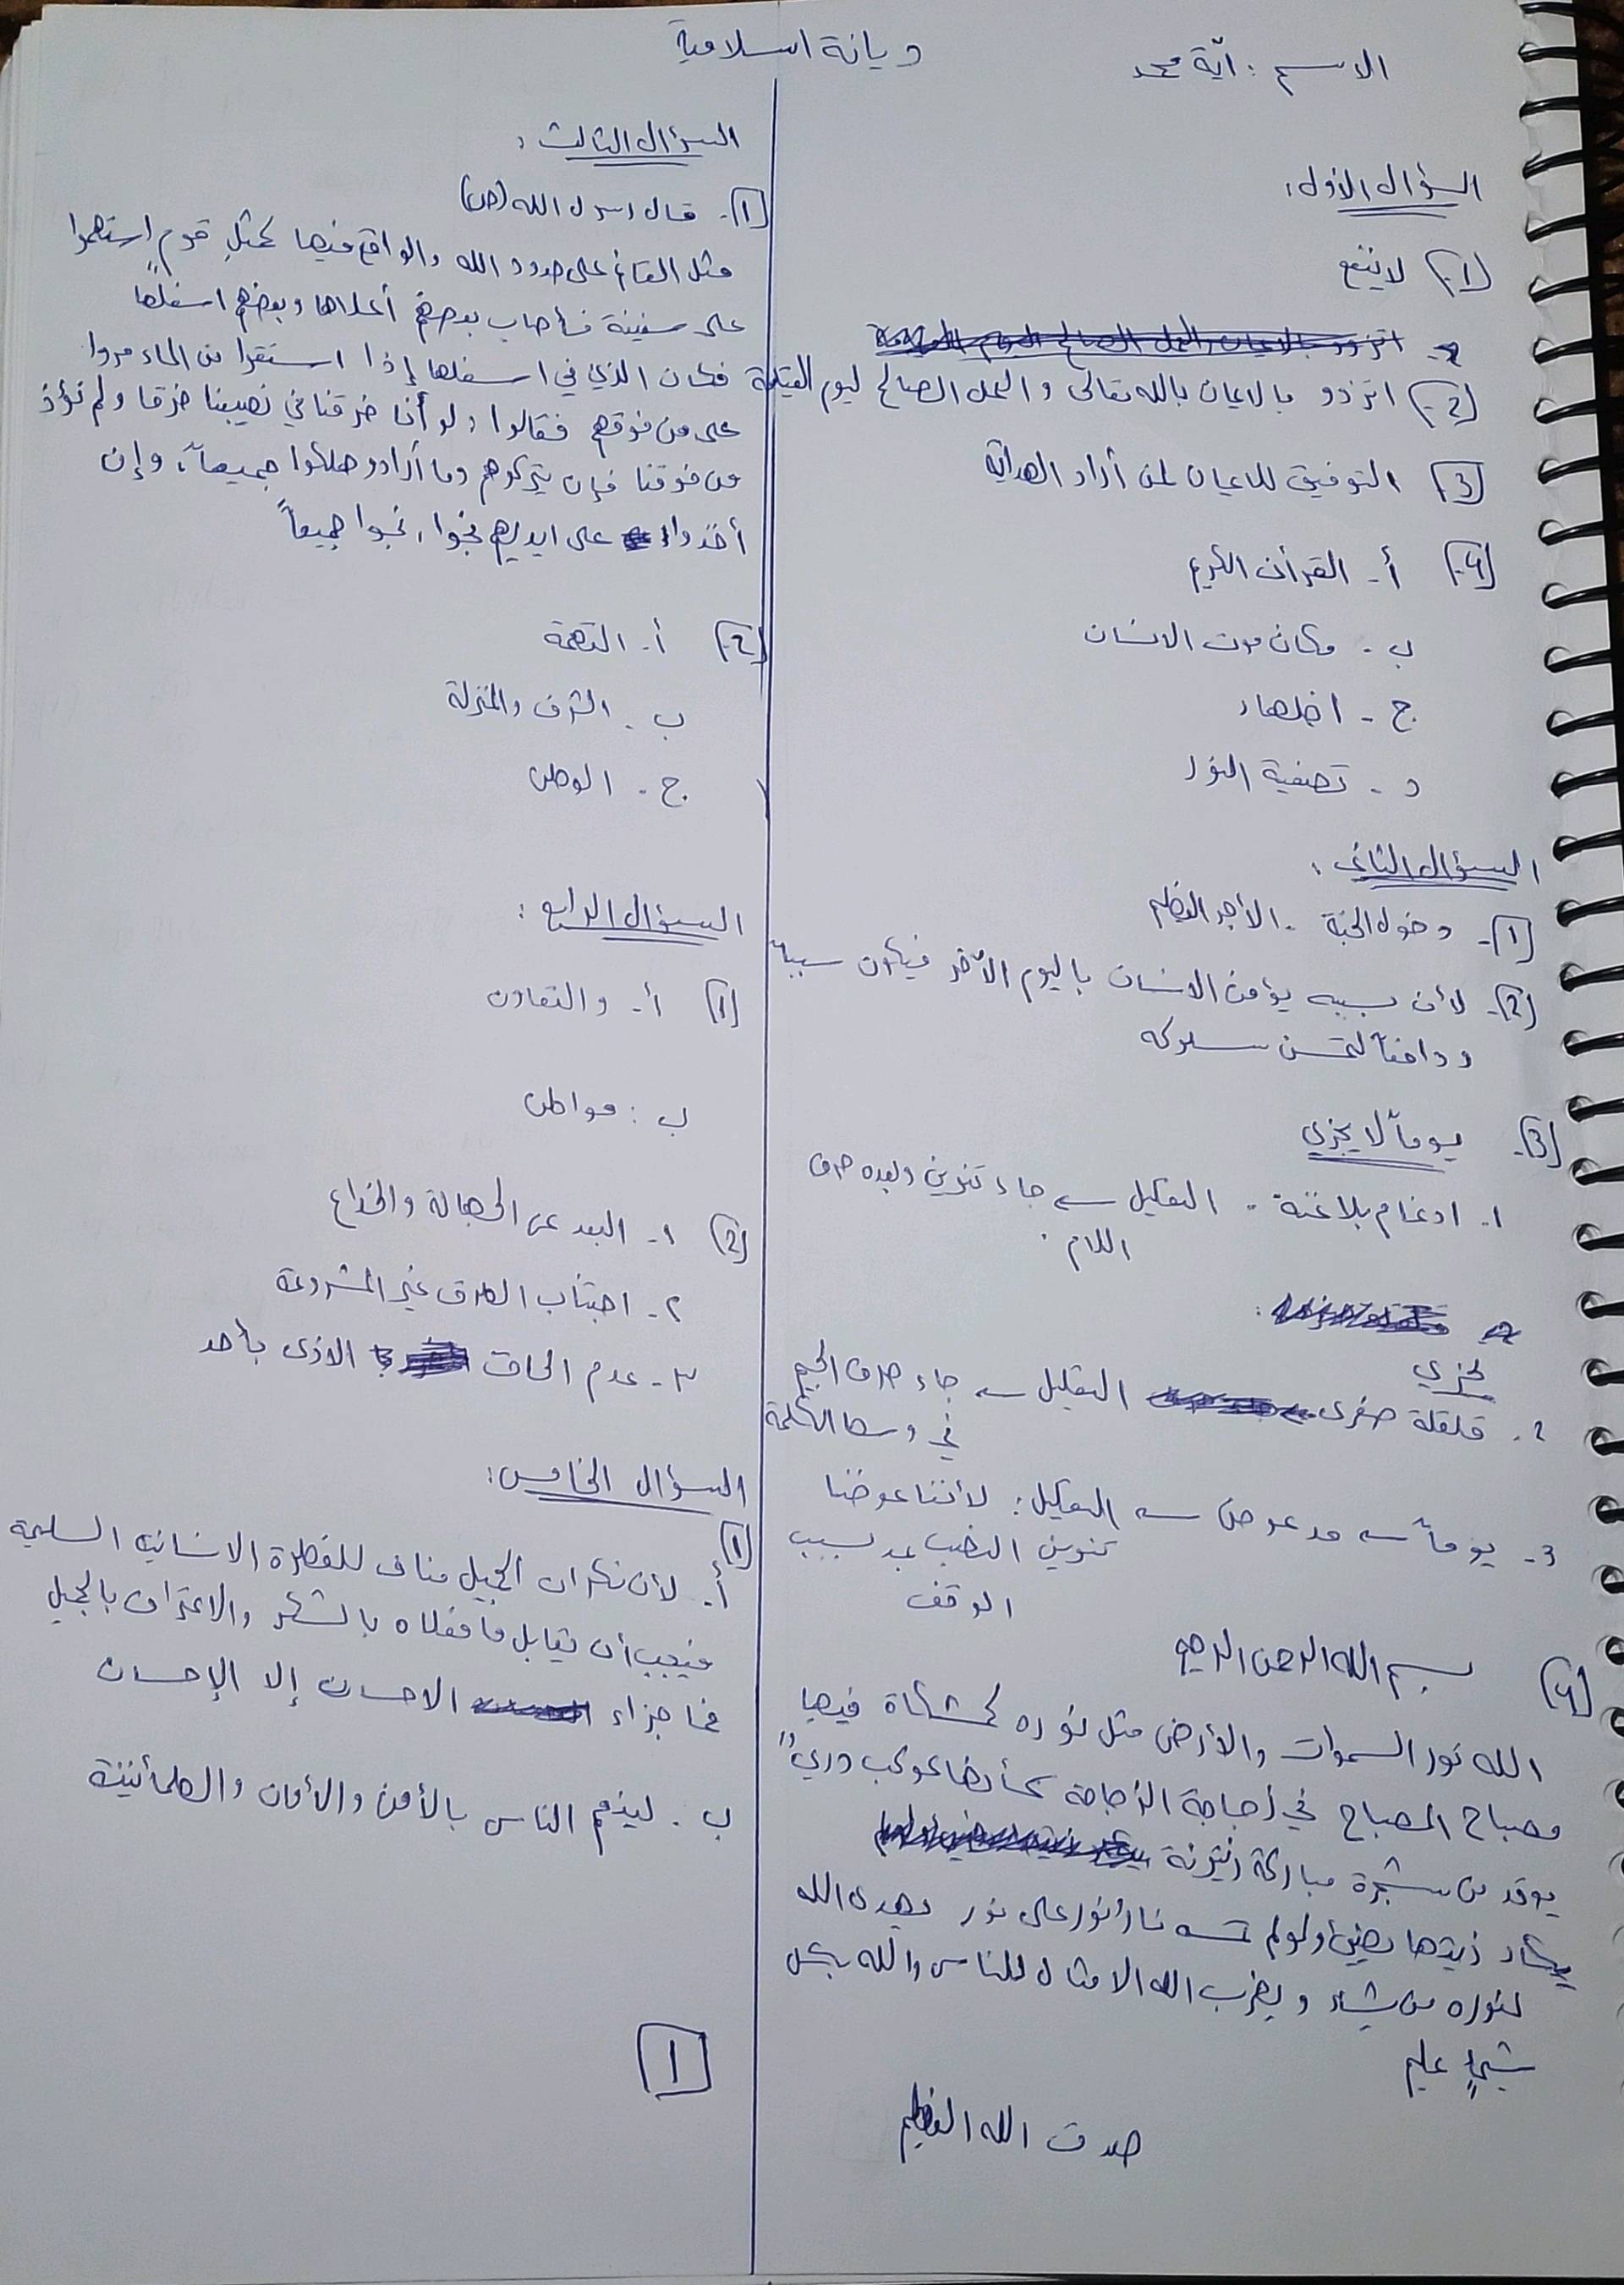 ديانة اسلامية
الاسم : آية محمد
السؤال الأول :
1- لا ينفع
2- اتزود بالايمان بالله تعالى والعمل الصالح ليوم القيامة
3- التوفيق للايمان لمن أراد الهداية
4- أ- القرآن الكريم
ب - مكان موت الانسان
ج - اظهار
د - تصفية النور
السؤال الثاني :
1- دخول الجنة - الأجر العظيم
2- لأن بسببه يؤمن الانسان باليوم الآخر فيكون سبباً
ودافعاً لتحسن سلوكه
3- يوماً لا يجزي
1- ادغام بلا غنة - التعليل ← جاء تنوين وبعده حرف
اللام .
يجزي
2- قلقلة صغرى التعليل ← جاء حرف الجيم
في وسط الكلمة
3- يوماً ← مد عوض ← التعليل : لأننا عوضنا
تنوين النصب بمد بسبب
الوقف
4 بسم الله الرحمن الرحيم
الله نور السموات والأرض مثل نوره كمشكاة فيها
مصباح المصباح في زجاجة الزجاجة كأنها كوكب دريٌ
يوقد من شجرة مباركة زيتونة
يكاد زيتها يضيئ ولو لم تمسسه نار نور على نور يهدي الله
لنوره من يشاء ويضرب الله الامثال للناس والله بكل
شيءٍ عليم
صدق الله العظيم
السؤال الثالث :
1- قال رسول الله (ص)
مثل القائم على حدود الله والواقع فيها كمثلِ قومٍ استهموا
على سفينة فأصاب بعضهم أعلاها وبعضهم اسفلها
فكان الذي في اسفلها إذا استقوا من الماء مروا
على من فوقهم فقالوا : لو أنا خرقنا في نصيبنا خرقا ولم نؤذ
من فوقنا فإن يتركوهم وما أرادو هلكوا جميعاً ، وإن
أخذوا على ايديهم نجوا ، نجوا جميعاً
2- أ- التهمة
ب - الشرف والمنزلة
ج - الوطن
السؤال الرابع :
1 أ- والتعاون
ب : مواطن
2 1- البعد عن الجهالة والخداع
٢- اجتناب الطرق غير المشروعة
٣- عدم الحاق الاذى بأحد
السؤال الخامس :
1
أ- لأن نكران الجميل مناف للفطرة الانسانية السليمة
فيجب أن نقابل ما فعلاه بالشكر والاعتراف بالجميل
فما جزاء الاحسان إلا الإحسان
ب - لينعم الناس بالأمن والأمان والطمأنينة
1